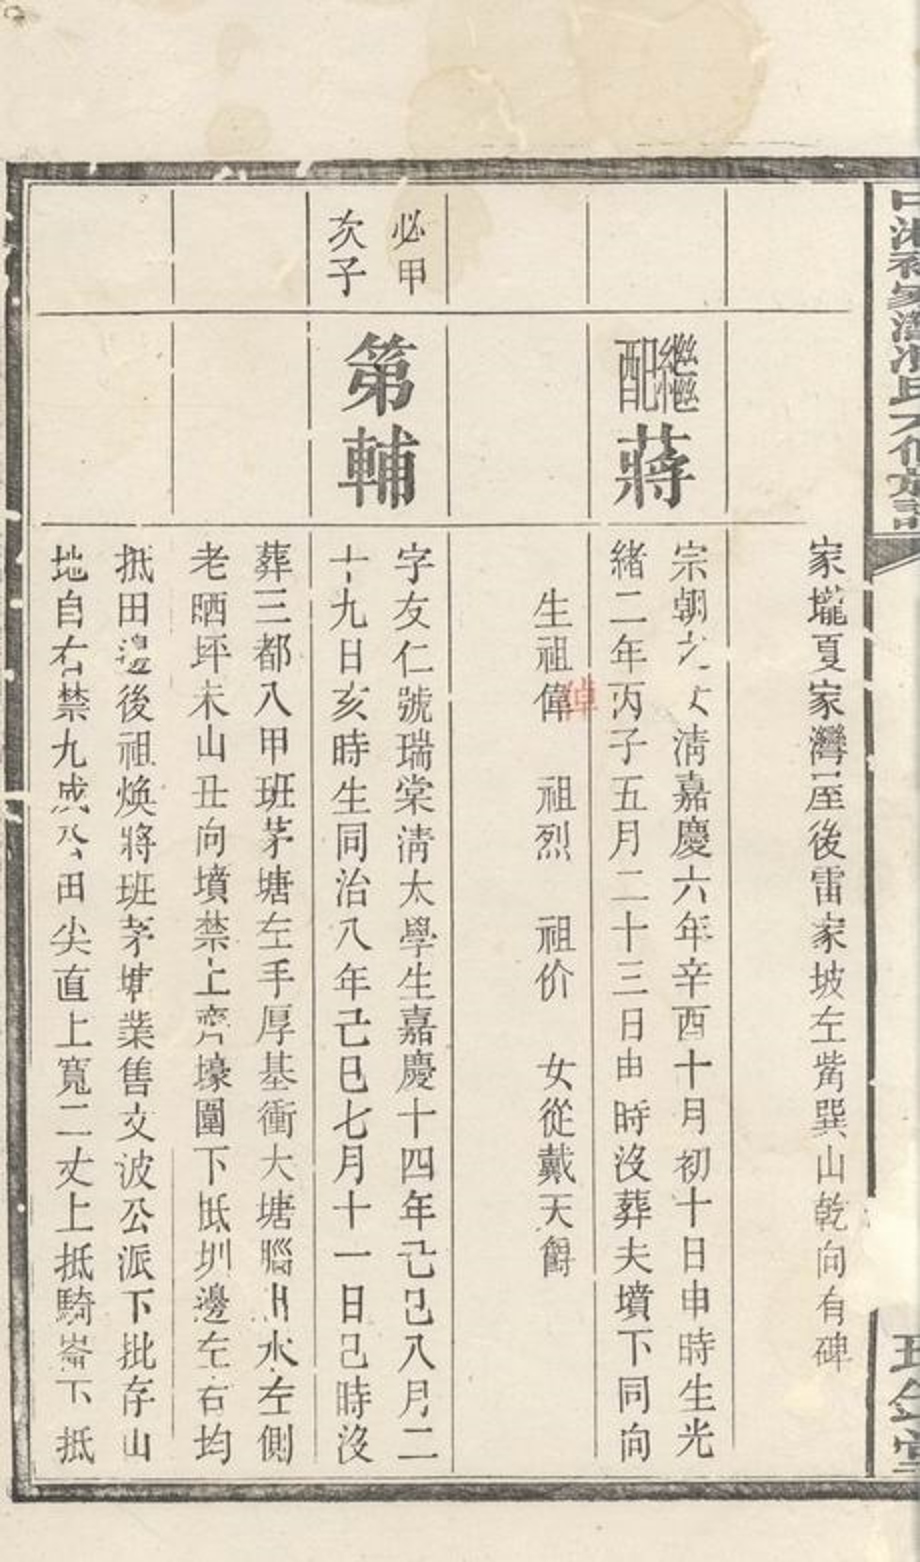 家壠夏家灣屋後雷家坡左觜巽山乾向有碑
繼配
蔣
宗朝之女淸嘉慶六年辛酉十月初十日申時生光
緒二年丙子五月二十三日由時沒葬夫墳下同向
生祖偉 祖烈 祖价 女從戴天爵
倬
必甲
次子
第輔
字友仁號瑞棠淸太學生嘉慶十四年己巳八月二
十九日亥時生同治八年己巳七月十一日己時沒
葬三都八甲班茅塘左手厚基衝大塘腦出水左側
老晒坪未山丑向墳禁上齊壕圍下抵圳邊左右均
抵田邊後祖煥將班茅塘業售文波公派下批存山
地自右禁九成公田尖直上寬二丈上抵騎崙下抵